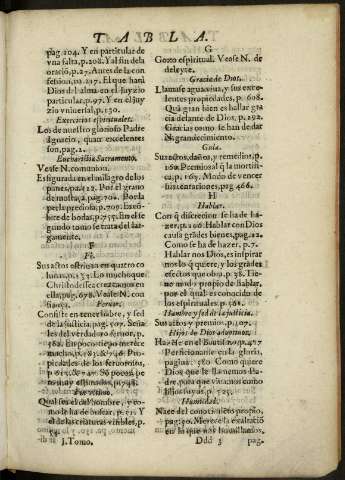 TABLA.
pag. 204. Y en particular de
vna falta, p. 208. Y al fin de la
oracion, p. 27. Antes de la con-
fession, pa. 217. El que hará
Dios del alma en el juyzio
particular, p. 97. Y en el juy
zio vniuersal, p. 130.
Exercicios espirituales.
Los de nuestro glorioso Padre
Ignacio, quan excelentes
son, pag. 2.
Eucharistia Sacramento.
Vease N. comunion.
Es figurada en el milagro de los
panes, p. 412. Por el grano
de mostaza, pag. 702. Por la
perla preciosa, p. 709.
bre de bodas, p. 757. En el se
gundo tomo se trata del lar-
gamente.
F
Fè.
Sus actos
lunas, p. 133. Lo mucho que
Christo dessea crezcamos en
ella, pag. 678. Vease N. con
Feruor.
Consiste en tener hambre, y sed
de la justicia, pag. 507. Seña-
les del verdadero feruor, p.
386. En poco tiempo merece
mucho, p. 583. & 746. Pro-
piedades de los feruorosos,
p. 615. & 747. Son pocos pe-
ro muy estimados, p. 748.
Fin vltimo.
Qual sea el del hombre, y co-
mo le ha de buscar, p. 51. Y
el de las criaturas visibles, p.
54.
I. Tomo.
G
Gozo espiritual. Vease N. de
deleyte.
Gracia de Dios.
Llamase agua viua, y sus exce-
lentes propiedades, p. 608.
Quã gran bien es hallar gra
cia delante de Dios, p. 292.
Gracias como se han de dar
N. agradecimiento.
Gula.
Sus actos, daños, y remedios, p.
160. Premios de la mortifi-
ca, p. 165. Modo de vencer
sus tentaciones, pag. 466.
H
Hablar.
Con q̃ discrecion se ha de ha-
zer, p. 170. Hablar con Dios
causa grãdes bienes, pag. 12.
Como se ha de hazer, p. 7.
Hablar nos Dios, es inspirar
nos lo q̃ quiere, y los grãdes
efectos que obra, p. 38. Tie-
ne modo propio de hablar,
por el qual es conocido de
los espirituales, p. 561.
Hambre y sed de la justicia.
Sus actos y premio, p. 507.
Hijos de Dios adoptiuos.
Hazese en el Bautismo, p. 417
Perficionanse en la gloria,
pagina 580. Como quiere
Dios que le llamemos Pa-
dre, para que viuamos como
hijos suyos, p. 525.
Humildad.
Nace del conocimiento propio,
pag. 30. Merece la exaltació
en lo que nos humillamos,
Ddd 3 pag.